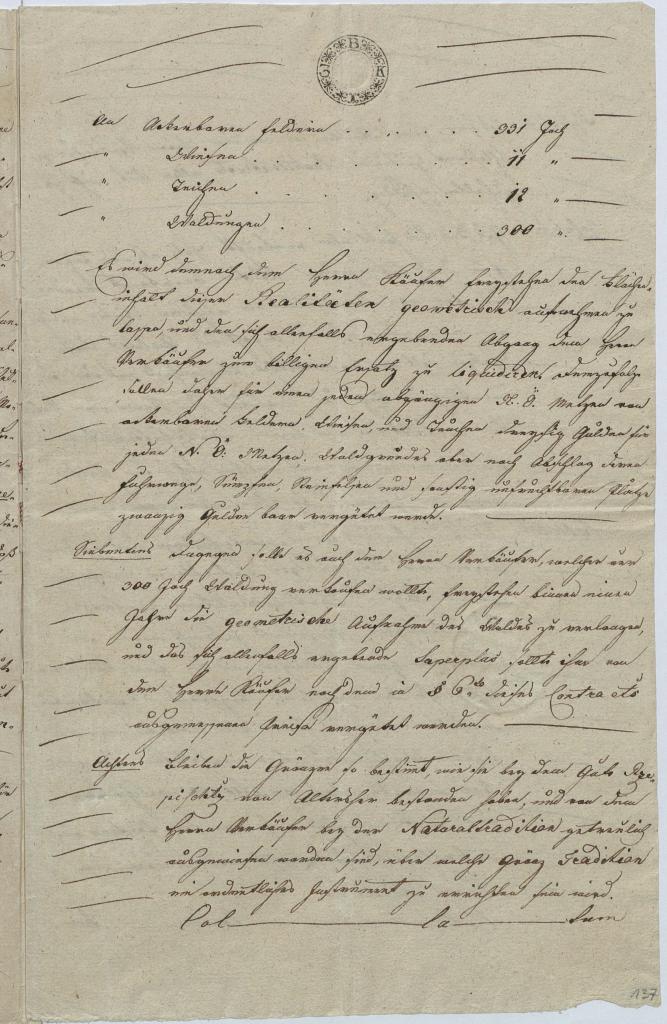 An Ackerbaren Feldern . . . . . 331 Joch
" Wiesen . . . . . 11 "
" Teichen . . . . . 12 "
" Waldungen . . . . . 300 "
Es wird demnach dem Herrn Käufer freystehen den Flächen-
inhalt dieser Realitäten geometrisch aufnehmen zu
lassen, und den sich allenfalls ergebenden Abgang dem Herrn
Verkäufer zum billigen Ersatz zu liquidiren, demzufolge
sollen daher für einen jeden abgängigen N. Ö. Metzen von
ackerbaren Feldern, Wiesen, und Teuchen dreyßig Gulden für
jeden N. Ö. Metzen Waldgrundes aber nach Abschlag deren
Fuhrwege, Steinfelsen und sonstig unfruchtbaren Plätze
zwanzig Gulden baar vergütet werde.
Siebentens dagegen solle es auch dem Herrn Verkäufer, welcher nur
300 Joch Waldung verkaufen wollte, freystehen binnen einem
Jahre die geometrische Aufnahme des Waldes zu verlangen,
und das sich allenfalls ergebende Superplus sollte ihm von
dem Herrn Käufer nach dem in § 6to dieses Contracts
ausgemessenen Preise vergütet werden.
Achtens Bleiben die Gränzen so bestimt, wie sie bey dem Gute
von Altersher bestanden haben, und von dem
Herrn Verkäufer bey der Naturaltradition getreulich
ausgewiesen worden sind, über welche Gränz Tradition
ein ordentliches Instrument zu errichten sein wird.
Col la tum
137